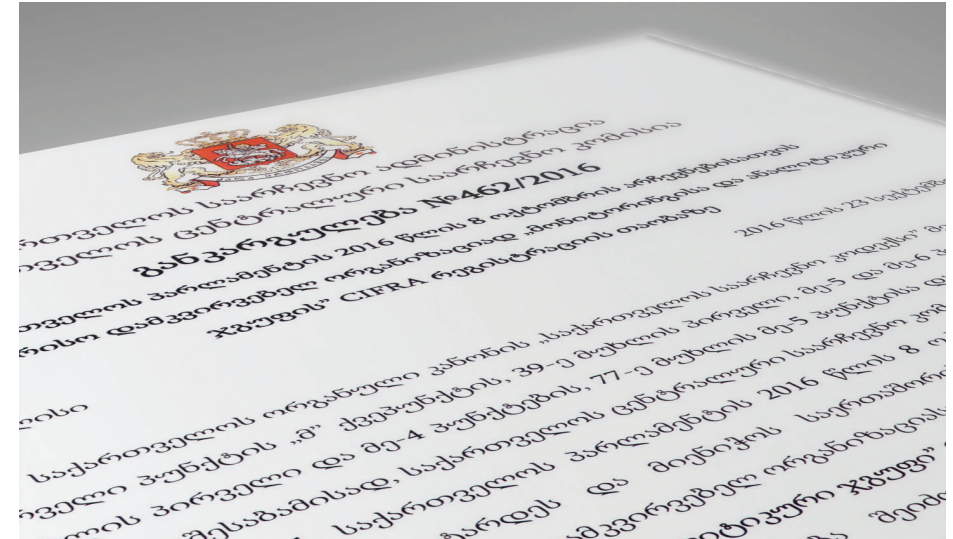 საარჩევნო ადმინისტრაცია
ცენტრალური საარჩევნო კომისია
განკარგულება №462/2016
პარლამენტის 2016 წლის 8 ოქტომბრის არჩევნებისათვის
დამკვირვებელ ორგანიზაციად „მონიტორინგისა და ანალიტიკური
ჯგუფის” CIFRA რეგისტრაციის თაობაზე
2016 წლის 23
საქართველოს ორგანული კანონის „საქართველოს საარჩევნო კოდექსი”
პუნქტის „მ” ქვეპუნქტის, 39-ე მუხლის პირველი, მე-5 და მე-6
პირველი და მე-4 პუნქტების, 77-ე მუხლის მე-5 პუნქტისა და
შესაბამისად, საქართველოს ცენტრალური საარჩევნო
საქართველოს პარლამენტის 2016 წლის 8
და მიენიჭოს
ორგანიზაციის
ჯგუფი”